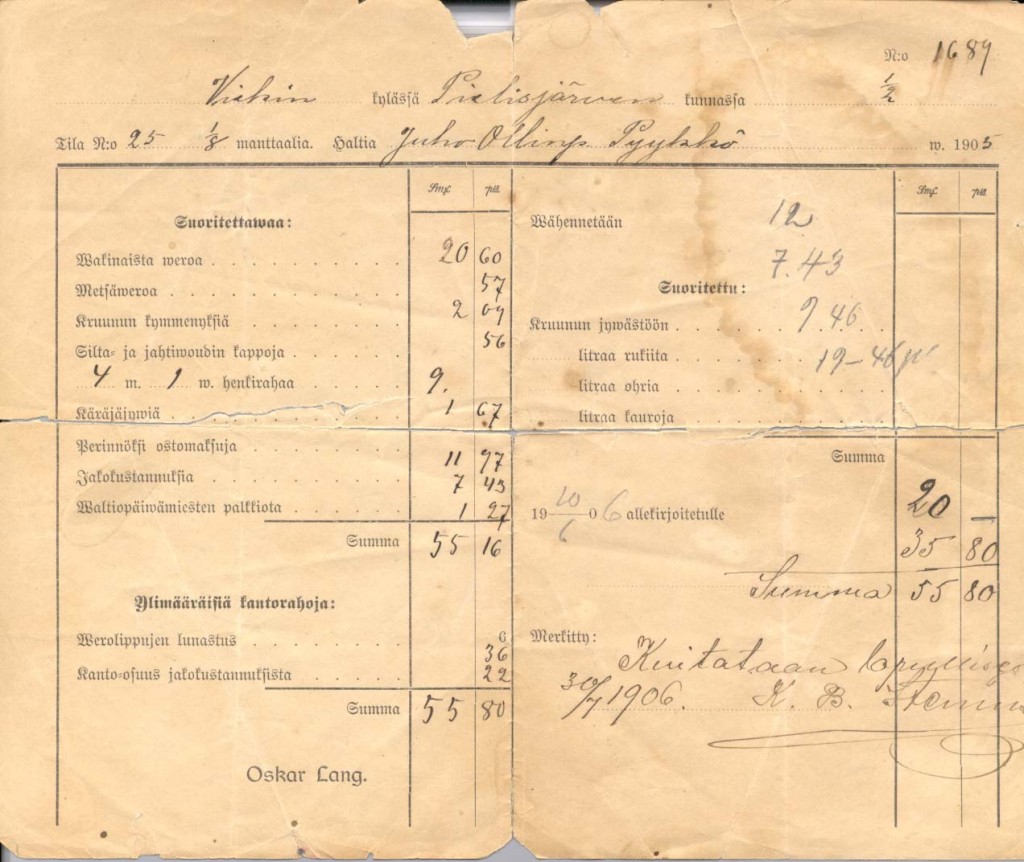 N:o 1689
Viekin kylässä Pielisjärven kunnassa 1/2
Tila N:o 25 1/8 manttaalia. Haltia Juho Ollinp. Pyykkö w. 1905
Smk. pit.
Suoritettawaa:
Wakinaista weroa 20 60
Metsäweroa 57
Kruunun kymmenyksiä 2 09
Silta- ja jahtiwoudin kappoja 56
4 m. 1 w. henkirahaa 9.
Käräjäjywiä 1 67
Perinnöksi ostomaksuja 11 97
Jakokustannuksia 7 43
Waltiopäiwämiesten palkkiota 1 27
Summa 55 16
Ylimääräisiä kantorahoja:
Werolippujen lunastus 36
Kanto-osuus jakokustannuksista 22
Summa 55 80
Oskar Lang.
Smk. pit.
Wähennetään 12
7.43
Suoritettu:
Kruunun jywästöön 9.46
litraa rukiita 19-46 p
litraa ohria
litraa kauroja
Summa
19 10/6 06 allekirjoitetulle 20 —
35 80
Summa 55 80
Merkitty:
Kuitataan
30/7 1906. K. B.